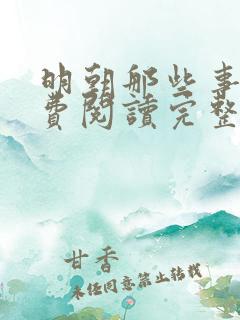 明朝那些事
費閱讀完整
甘香
未经同意禁止转载